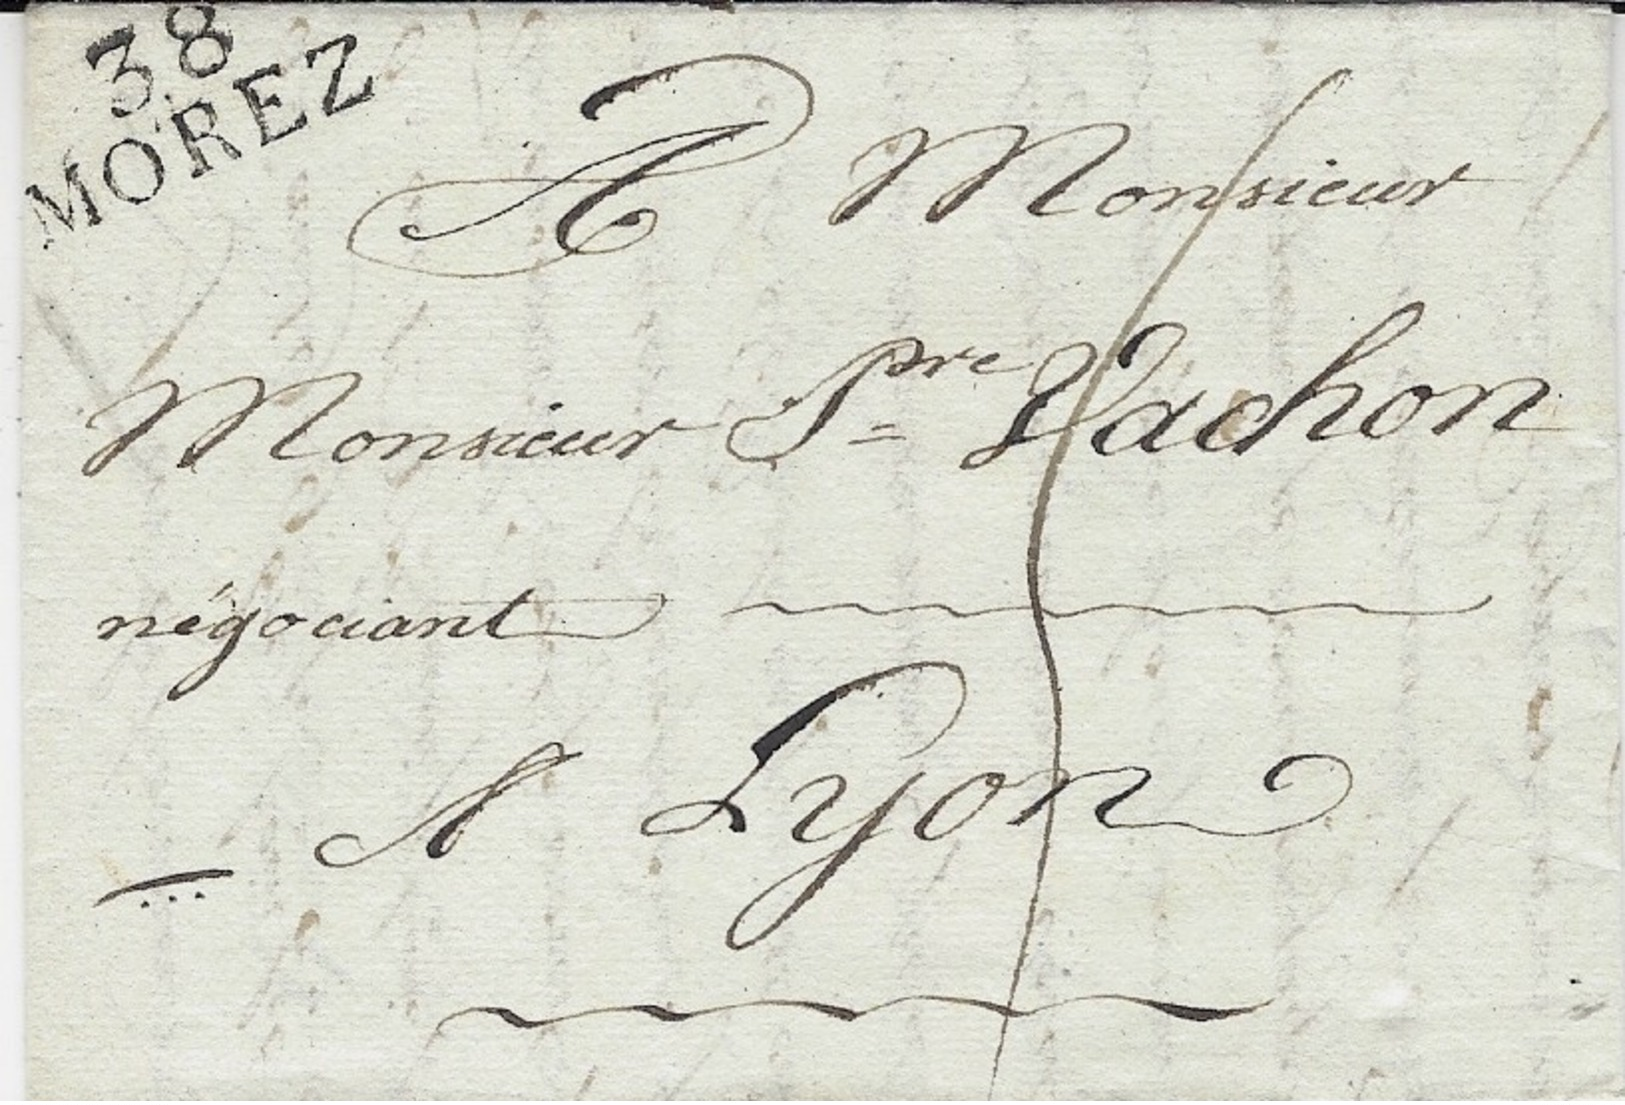 38
MOREZ
A Monsieur
Monsieur Pre Vachon
négociant
A Lyon